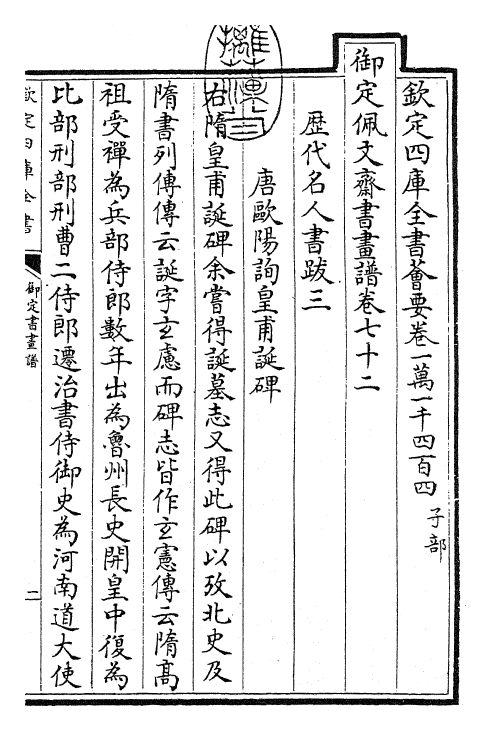 欽定四庫全書薈要卷一萬一千四百四 子部
御定佩文齋書畫譜卷七十二
歴代名人書跋三
唐歐陽詢皇甫誕碑
右隋皇甫誕碑余嘗得誕墓志又得此碑以攷北史及
隋書列傳傳云誕字玄慮而碑志皆作玄憲傳云隋髙
祖受禪為兵部侍郎數年出為魯州長史開皇中復為
比部刑部刑曹二侍郎遷治書侍御史為河南道大使
欽定四庫全書
御定書畫譜
二